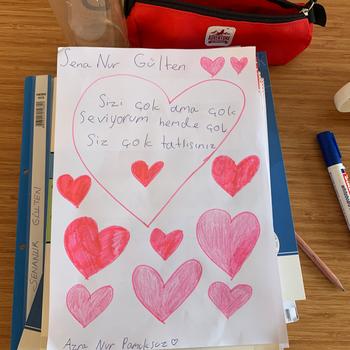 Sena Nur Gülten
Sizi çok ama çok
Seviyorum hemde çok
Siz çok tatlısınız
Azra Nur Pamuksuz
SENANUR GÜLTEN
ADVENTURE